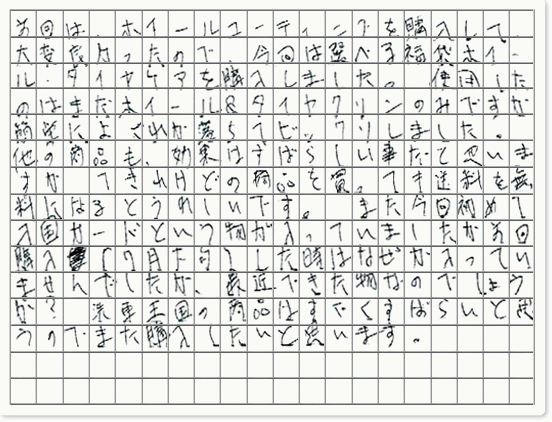 前回は、ホイールコーティングを購入して
大変だったので 今回は選べる福袋ホイー
ル・タイヤケアを購入しました。 使用した
のはまだホイール&タイヤクリンのみですが
簡単によごれが落ちてビックリしました。
他の商品も、効果はすばらしい事だと思いま
すが できればどの商品を買っても送料を無
料になるとうれしいです。 また今回初めて
入国カードという物が入っていましたが前回
購入(7月たり)した時はなぜか入ってい
ませんでしたが、最近できた物なのでしょう
か? 洗車王国の商品はすごくすばらいと思
うのでまた購入したいと思います。